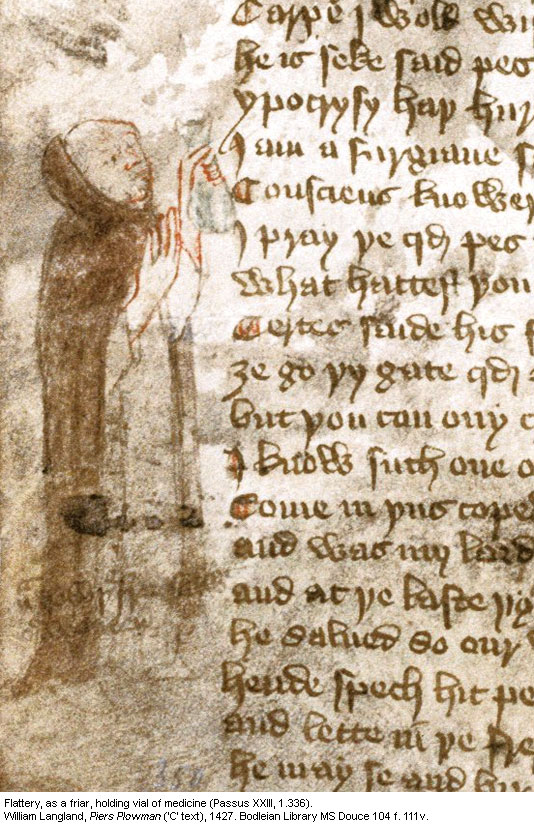 Carpe I wolł wi
he is seke said pes
ypocrysy haþ hur
I am a surgiane s
Consciens knower
I pray þe qđ pes
What hattest you
Certes saide his f
ȝe go þy gate qđ
but you con ony c
I know such one o
Come in þus cope
and was my lord
and at þe laste þy
he salued so our
hende spech hit pe
and lette in þe fre
he may se and
Flattery, as a friar, holding vial of medicine (Passus XXIII, 1.336).
William Langland, Piers Plowman ('C' text), 1427. Bodleian Library MS Douce 104 f. 111v.